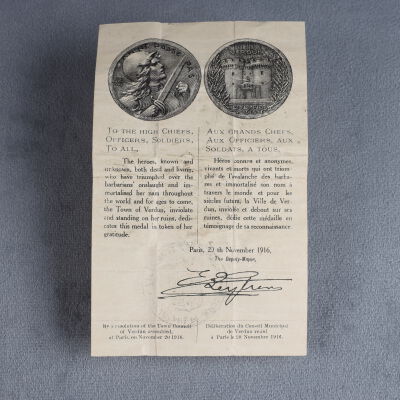 ON NE PASSE PAS
VERDUN
To the high Chiefs,
Officers, Soldiers,
To all,
The heroes, known and
unknown, both dead and living,
who have triumphed over the
barbarians' onslaught and im-
mortalised her nam throughout
the world and for ages to come,
the Town of Verdun, inviolate
and standing on her ruins, dedi-
cates this medal in token of her
gratitude.
Aux grands Chefs,
Aux Officiers, aux
Soldats, a tous,
Héros connus et anonymes,
vivants et morts qui ont triom-
phé de l'avalanche des barba-
res et immortalisé son nom à
travers le monde et pour les
siècles futurs, la Ville de Ver-
dun, inviolée et debout sur ses
ruines, dédie cette médaille en
témoignage de sa reconnaissance.
Paris, 20 th November 1916.
The Deputy-Mayor,
By a resolution of the Town Council
of Verdun assembled,
at Paris, on November 20 1916.
Délibération du Conseil Municipal
de Verdun réuni
à Paris le 20 Novembre 1916.